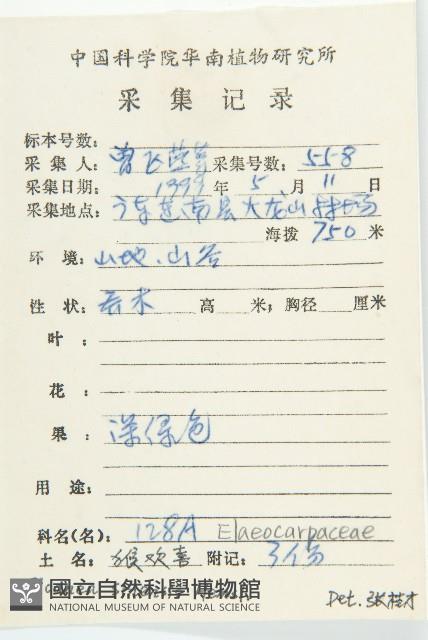 中国科学院华南植物研究所
采集记录
标本号数:
采集人: 曾飞燕等 采集号数: 558
采集日期: 1999 年 5 月 11 日
采集地点: 广东连南县大龙山林场
海拨 750 米
环境: 山地、山谷
性状: 乔木 高 米; 胸径 厘米
叶:
花:
果: 深绿色
用途:
科名(名): 128A Elaeocarpaceae
土名: 猴欢喜 附记: 3份
國立自然科學博物館
NATIONAL MUSEUM OF NATURAL SCIENCE
Det. 张桂才